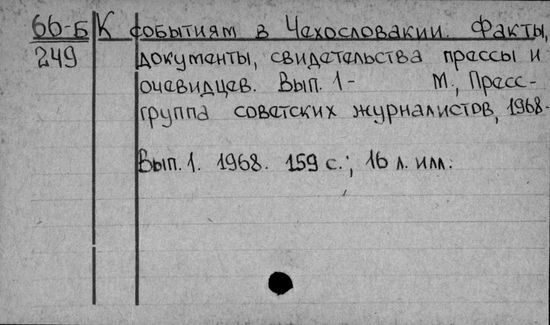 66-Б К событиям в Чехословакии. Факты,
249 документы, свидетельства прессы и
очевидцев. Вып. 1- М., Пресс-
группа советских журналистов, 1968-
Вып. 1. 1968. 159 с.; 16 л. илл.